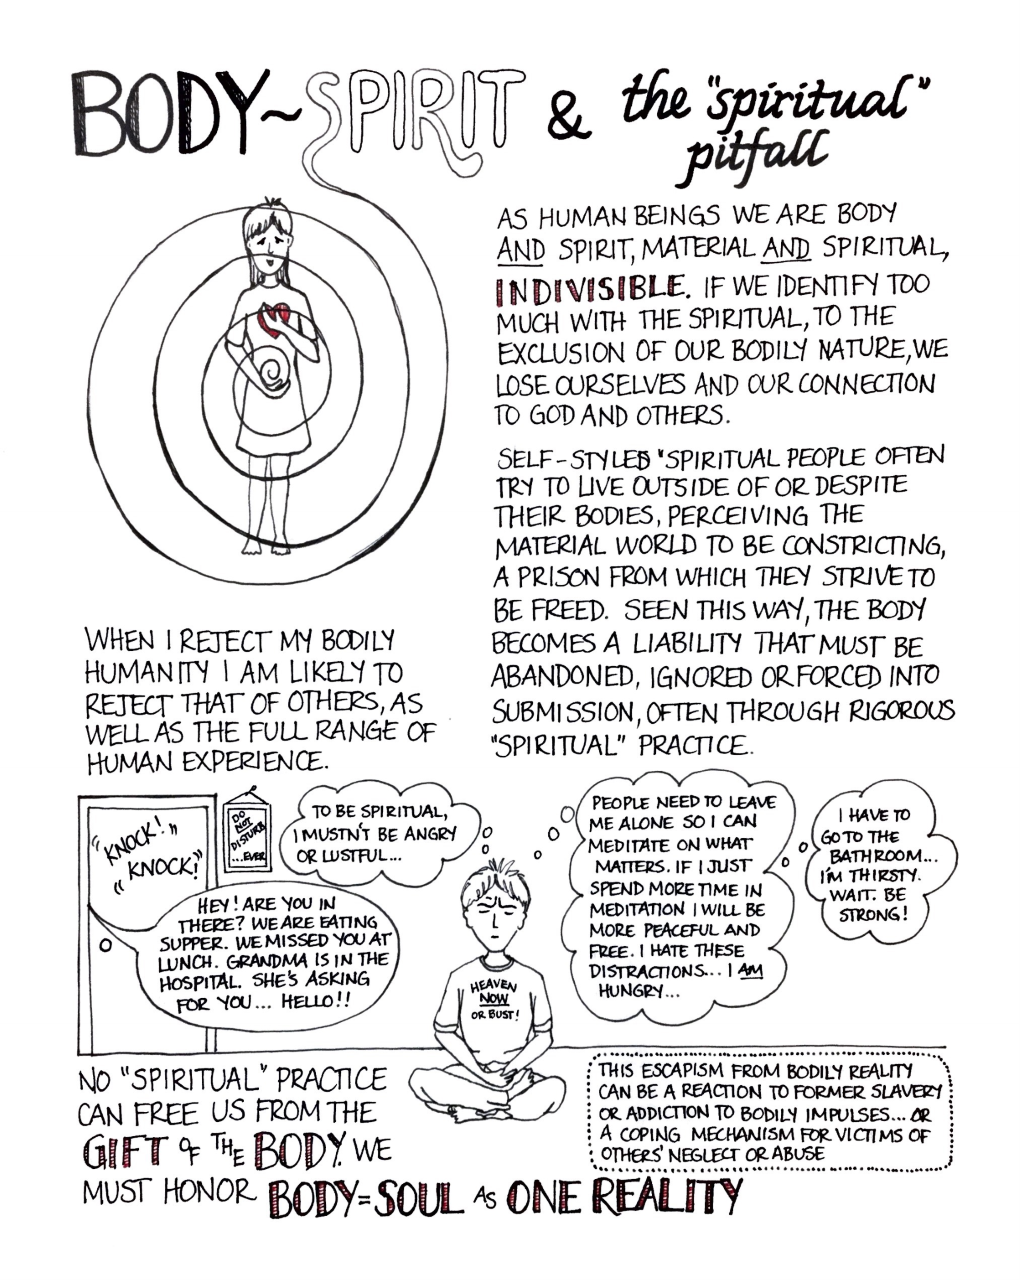 BODY~SPIRIT & the "spiritual"
pitfall
AS HUMAN BEINGS WE ARE BODY
AND SPIRIT, MATERIAL AND SPIRITUAL,
INDIVISIBLE. IF WE IDENTIFY TOO
MUCH WITH THE SPIRITUAL, TO THE
EXCLUSION OF OUR BODILY NATURE, WE
LOSE OURSELVES AND OUR CONNECTION
TO GOD AND OTHERS.
SELF-STYLED "SPIRITUAL PEOPLE OFTEN
TRY TO LIVE OUTSIDE OF OR DESPITE
THEIR BODIES, PERCEIVING THE
MATERIAL WORLD TO BE CONSTRICTING,
A PRISON FROM WHICH THEY STRIVE TO
BE FREED. SEEN THIS WAY, THE BODY
BECOMES A LIABILITY THAT MUST BE
ABANDONED, IGNORED OR FORCED INTO
SUBMISSION, OFTEN THROUGH RIGOROUS
"SPIRITUAL" PRACTICE.
WHEN I REJECT MY BODILY
HUMANITY I AM LIKELY TO
REJECT THAT OF OTHERS, AS
WELL AS THE FULL RANGE OF
HUMAN EXPERIENCE.
"KNOCK!"
"KNOCK!"
DO
NOT
DISTURB
...EVER
TO BE SPIRITUAL,
I MUSTN'T BE ANGRY
OR LUSTFUL...
HEY! ARE YOU IN
THERE? WE ARE EATING
SUPPER. WE MISSED YOU AT
LUNCH. GRANDMA IS IN THE
HOSPITAL. SHE'S ASKING
FOR YOU... HELLO!!
HEAVEN
NOW
OR BUST!
PEOPLE NEED TO LEAVE
ME ALONE SO I CAN
MEDITATE ON WHAT
MATTERS. IF I JUST
SPEND MORE TIME IN
MEDITATION I WILL BE
MORE PEACEFUL AND
FREE. I HATE THESE
DISTRACTIONS... I AM
HUNGRY...
I HAVE TO
GO TO THE
BATHROOM...
I'M THIRSTY.
WAIT. BE
STRONG!
NO "SPIRITUAL" PRACTICE
CAN FREE US FROM THE
GIFT OF THE BODY. WE
MUST HONOR BODY=SOUL AS ONE REALITY
THIS ESCAPISM FROM BODILY REALITY
CAN BE A REACTION TO FORMER SLAVERY
OR ADDICTION TO BODILY IMPULSES... OR
A COPING MECHANISM FOR VICTIMS OF
OTHERS' NEGLECT OR ABUSE